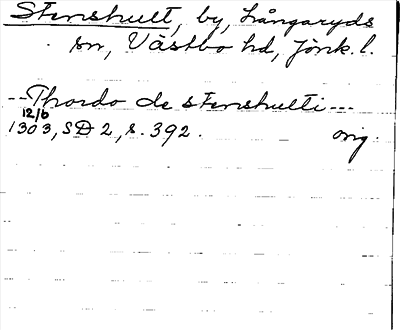 Stenshult, by, Långaryds
sn, Västbo hd, Jönk. l.
--Thordo de stenshulti---
12/6
1303, SD 2, s. 392. orig.